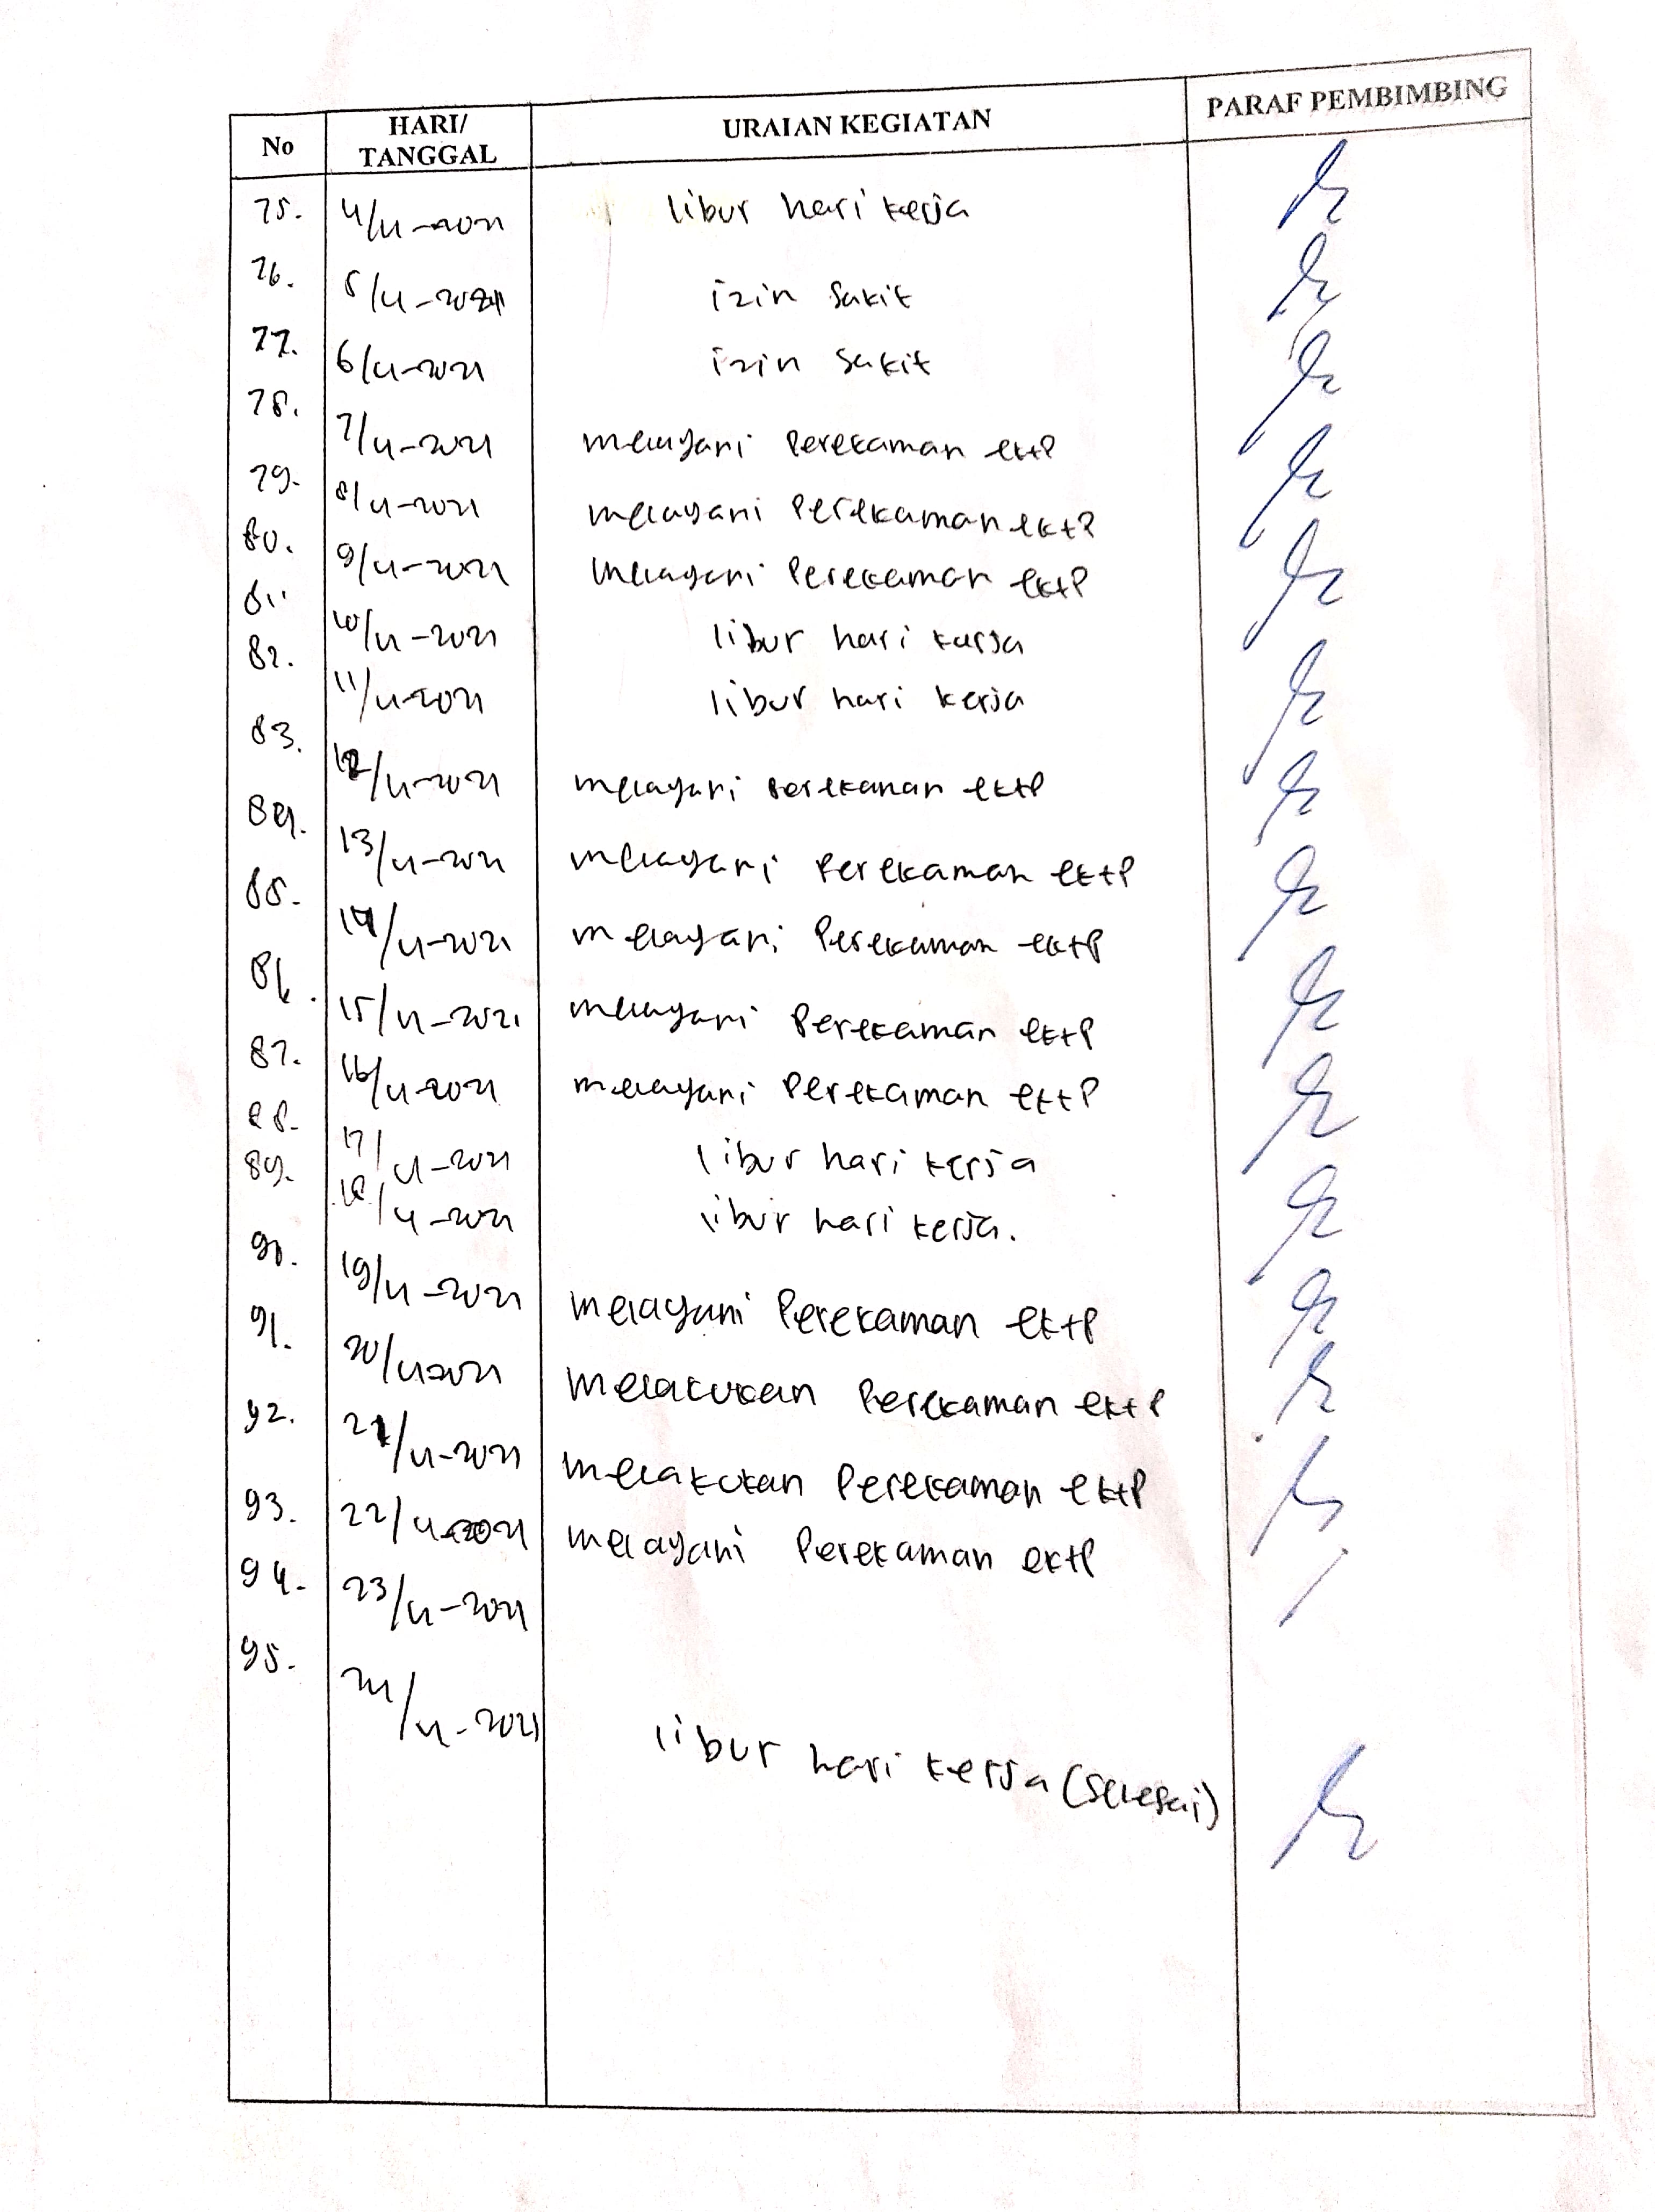 No HARI/ TANGGAL URAIAN KEGIATAN PARAF PEMBIMBING
75. 4/4-2021 libur hari kerja
76. 5/4-2021 izin sakit
77. 6/4-2021 izin sakit
78. 7/4-2021 melayani Perekaman ektP
79. 8/4-2021 melayani Perekaman ektP
80. 9/4-2021 melayani Perekaman ektP
81. 10/4-2021 libur hari kerja
82. 11/4-2021 libur hari kerja
83. 12/4-2021 melayani Perekaman ektP
84. 13/4-2021 melayani Perekaman ektP
85. 14/4-2021 melayani Perekaman ektP
86. 15/4-2021 melayani Perekaman ektP
87. 16/4-2021 melayani Perekaman ektP
88. 17/4-2021 libur hari kerja
89. 18/4-2021 libur hari kerja.
90. 19/4-2021 melayani Perekaman ektP
91. 20/4-2021 melakukan Perekaman ektP
92. 21/4-2021 melakukan Perekaman ektP
93. 22/4-2021 melayani Perekaman ektP
94. 23/4-2021
95. 24/4-2021 libur hari kerja (selesai)